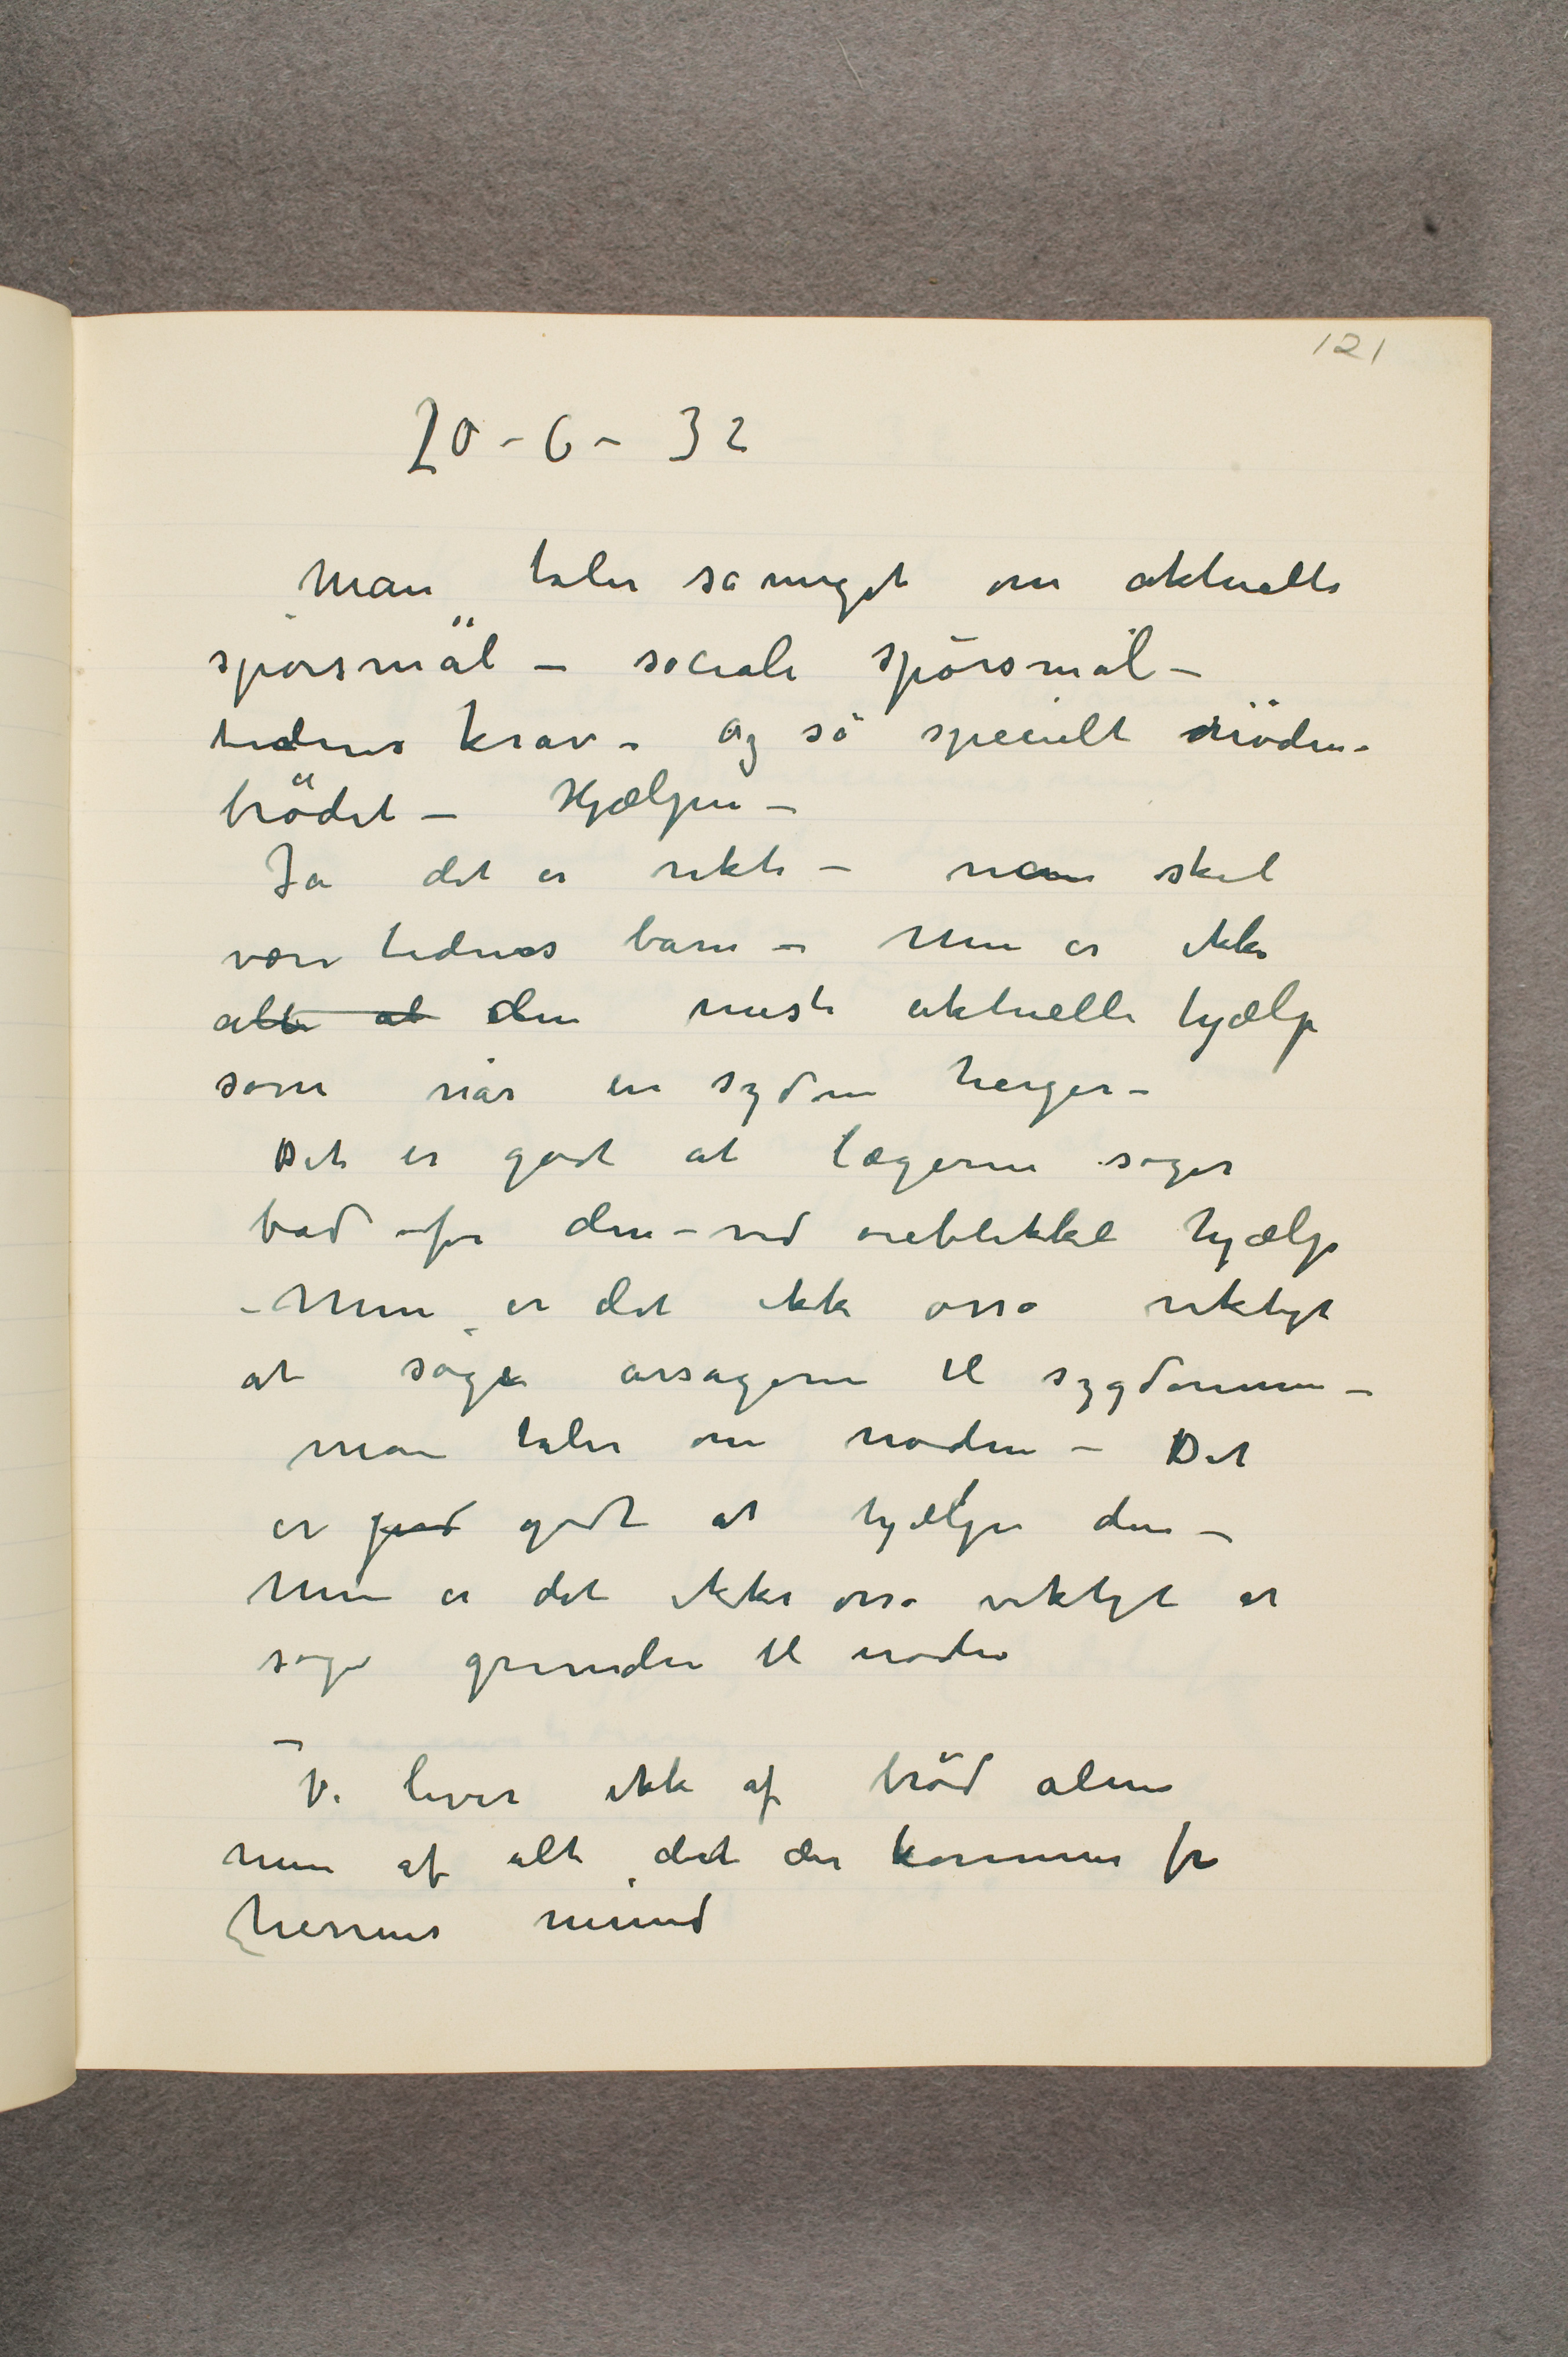 121
20-6-32
Man taler så meget om aktuelle
spörsmål – sociale spörsmål –
tidens krav – Og så specielt nöden –
brödet – Hjælpen –
Ja det er rikti – man skal
være tidens barn – Men er ikke
alt at den meste aktuelle hjælp
som når en sydom herger –
Det er godt at lægerne søger
bod for den – ved øieblikkel hjælp
– Men er det ikke osså viktigt
at søge årsagerne til sygdommen –
Man taler om nøden – Det
er god godt at hjælpe den –
Men er det ikke osså viktigt at
søge grunden til nøden
–
Vi lever ikke af bröd alene
men af alt det der kommer fra
herrens mund